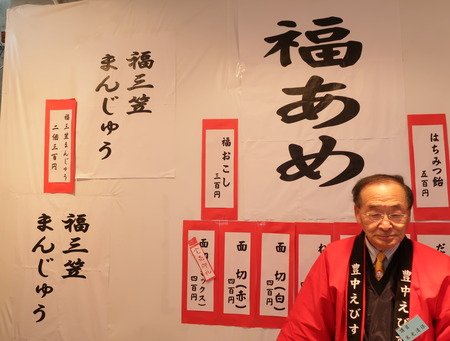 福あめ
福三笠
まんじゅう
福三笠まんじゅう
二個三百円
福三笠
まんじゅう
福おこし
三百円
はちみつ飴
五百円
面切(白)
四百円
面切(赤)
四百円
四百円
豊中えびす
豊中えびす